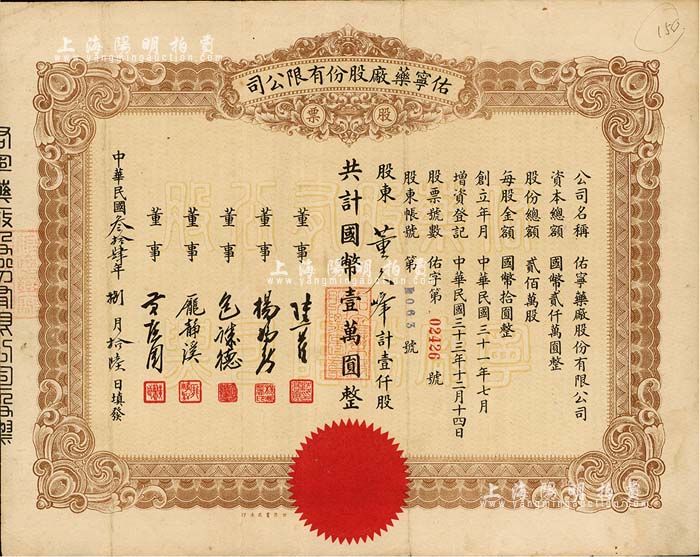 上海陽明拍賣
www.yangmingauction.com
150
佑寧藥廠股份有限公司
股票
公司名稱 佑寧藥廠股份有限公司
資本總額 國幣貳仟萬圓整
股份總額 貳佰萬股
每股金額 國幣拾圓整
創立年月 中華民國三十一年七月
增資登記 中華民國三十三年十二月十四日
股票號數 佑字第 02426 號
股東帳號 第 號
股東 董 峰 計壹仟股
共計國幣壹萬圓整
董事
董事 楊
董事
董事 龐靜溪
董事
中華民國叁拾肆年捌月拾陸日填發
上海陽明拍賣
www.yangmingauction.com
上海陽明拍賣
www.yangmingauction.com